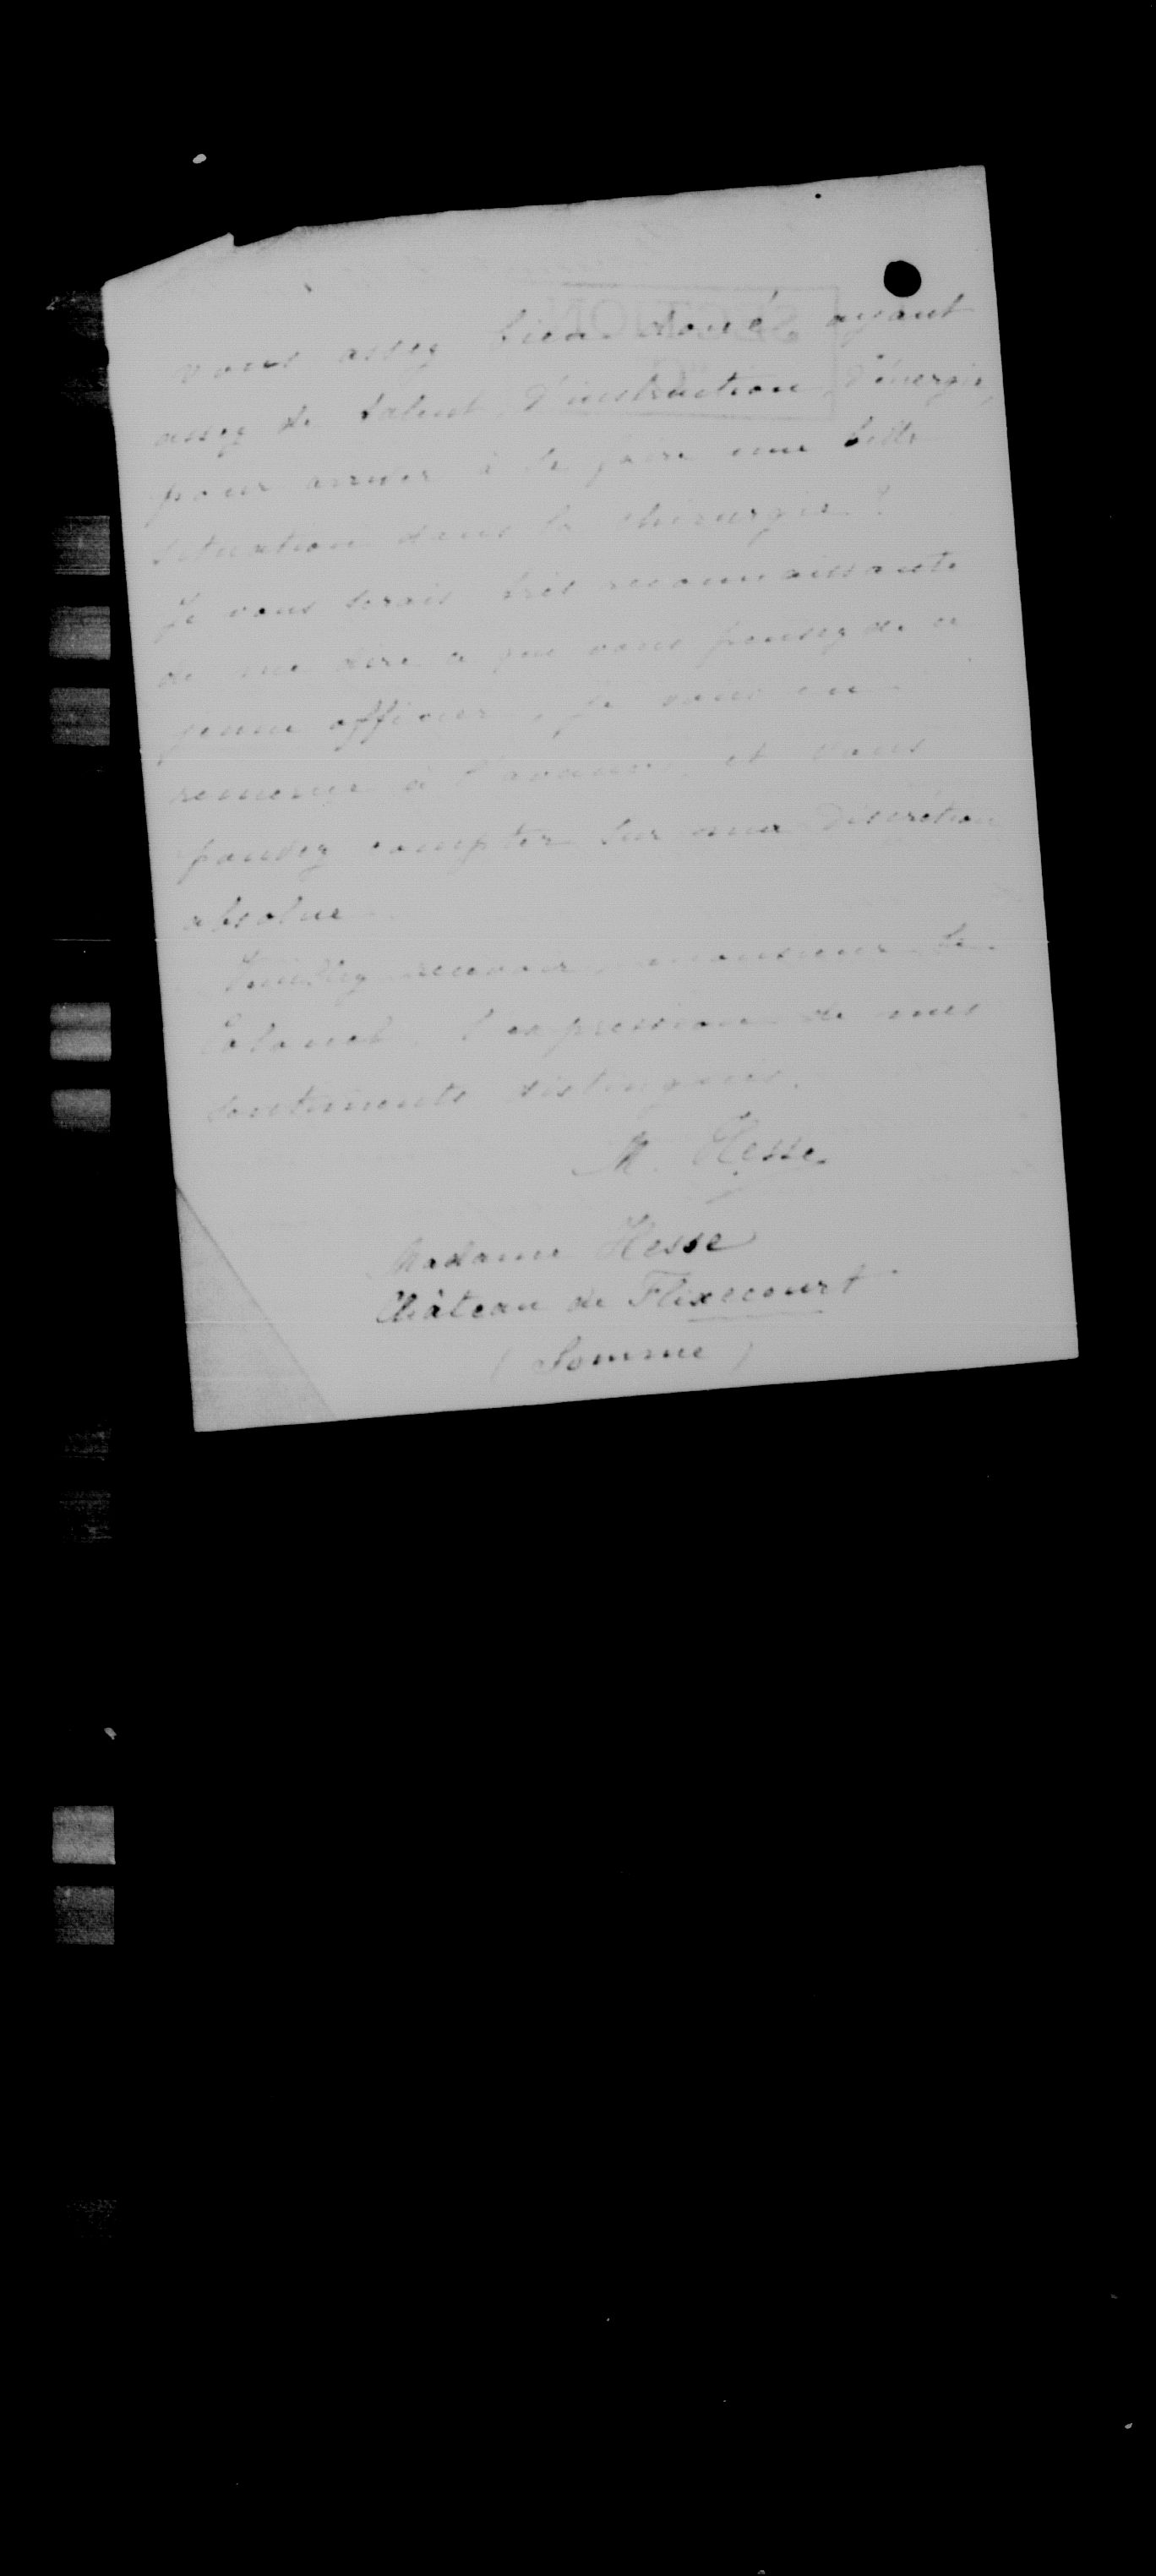 vous assez bien doué, ayant
assez de talent, d'instruction, d'énergie,
pour arriver à se faire une belle
situation dans la chirurgie ?
Je vous serais très reconnaissante
de me dire ce que vous pensez de ce
jeune officier, je vous en
remercie à l'avance, et vous
pouvez compter sur ma discrétion
absolue.
Veuillez recevoir, monsieur le
Colonel, l'expression de mes
sentiments distingués.
M. Hesse.
Madame Hesse
Château de Flixecourt
(Somme)